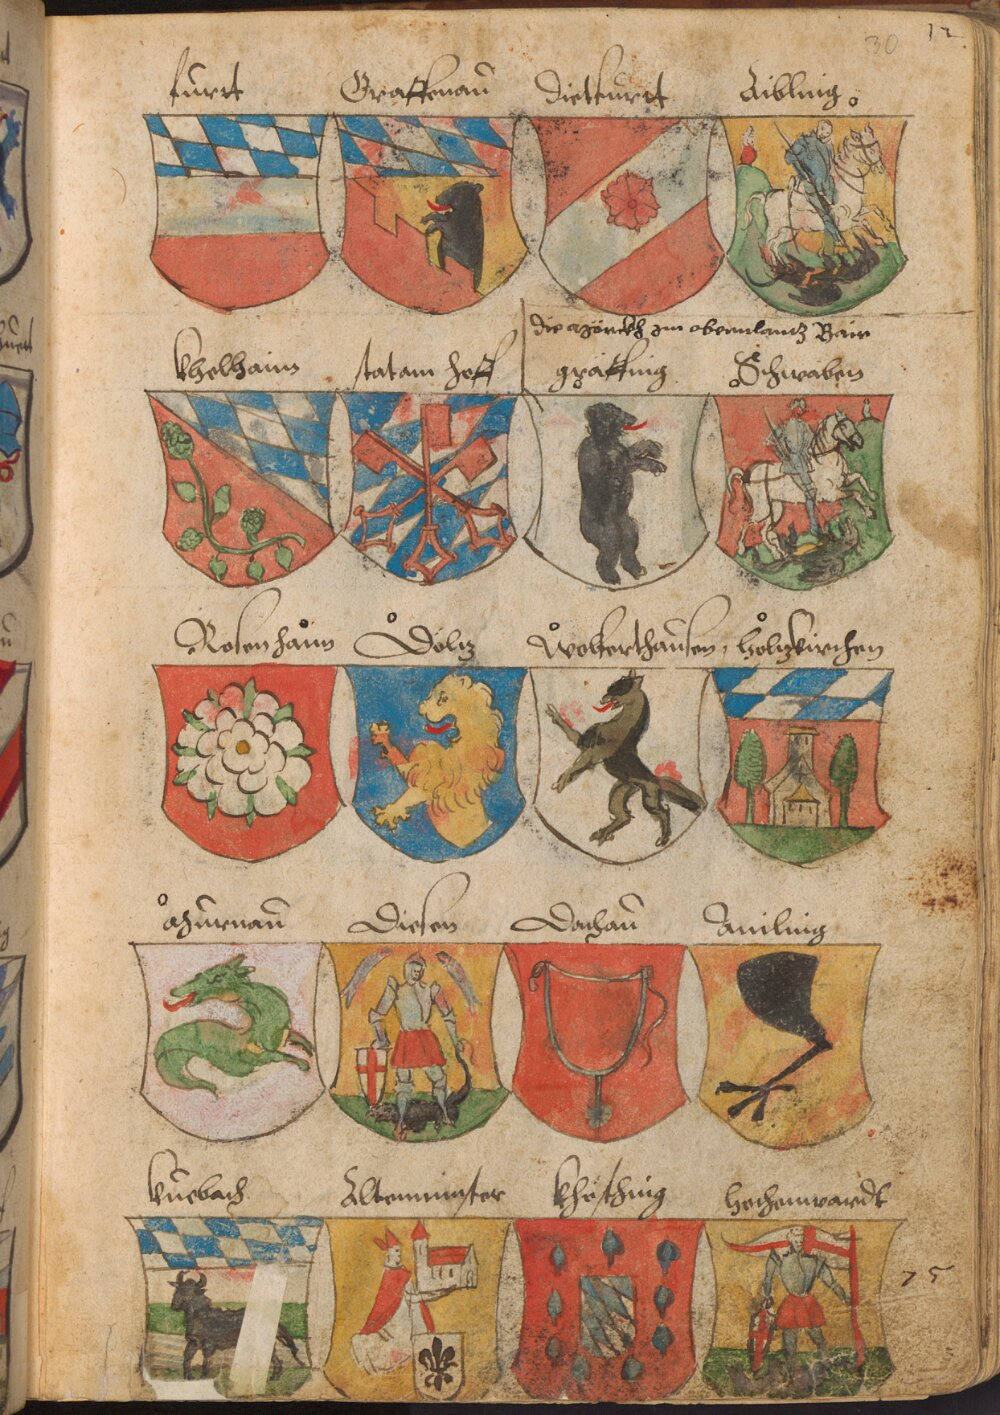 30 12
fürt Graffenaü Dietfürt Aibling
die Märckh im obernlandt Bair
Khelhaim statam hoff gräffing Schwaben
Rosenhaim Döltz Wolferthaüsen holtzkirchen
Mürnaü Diesen Dachaü Aüiling
Küebach Altenminster Khösching hochenwardt
75